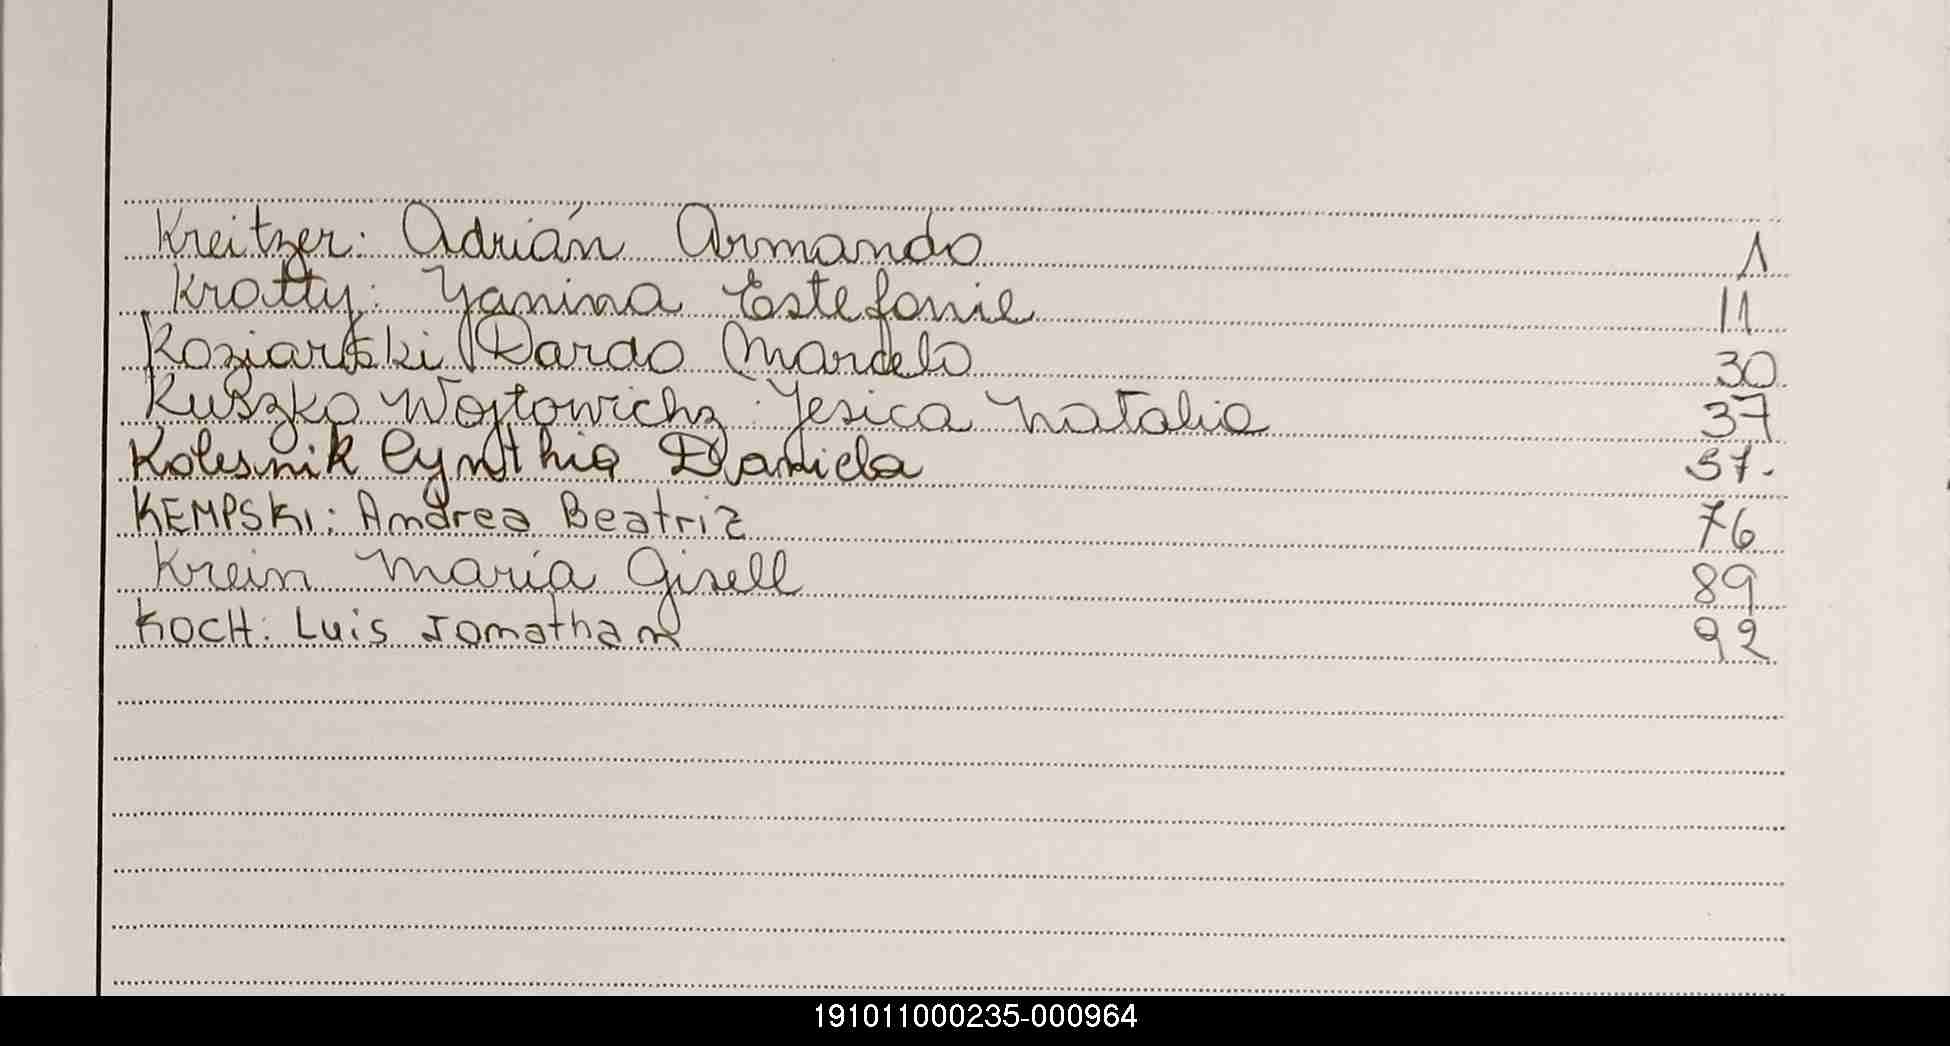 Kreitzer: Adrián Armando 1
Kratty: Yanina Estefanie 11
Koziarski Dardo Marcelo 30
Kuszko Wojtowichz Yesica Natalia 37
Kolesnik Cynthia Daniela 57.
KEMPSKI: Andrea Beatriz 76
Krein María Gisell 89
KOCH: Luis Jonathan 92
191011000235-000964